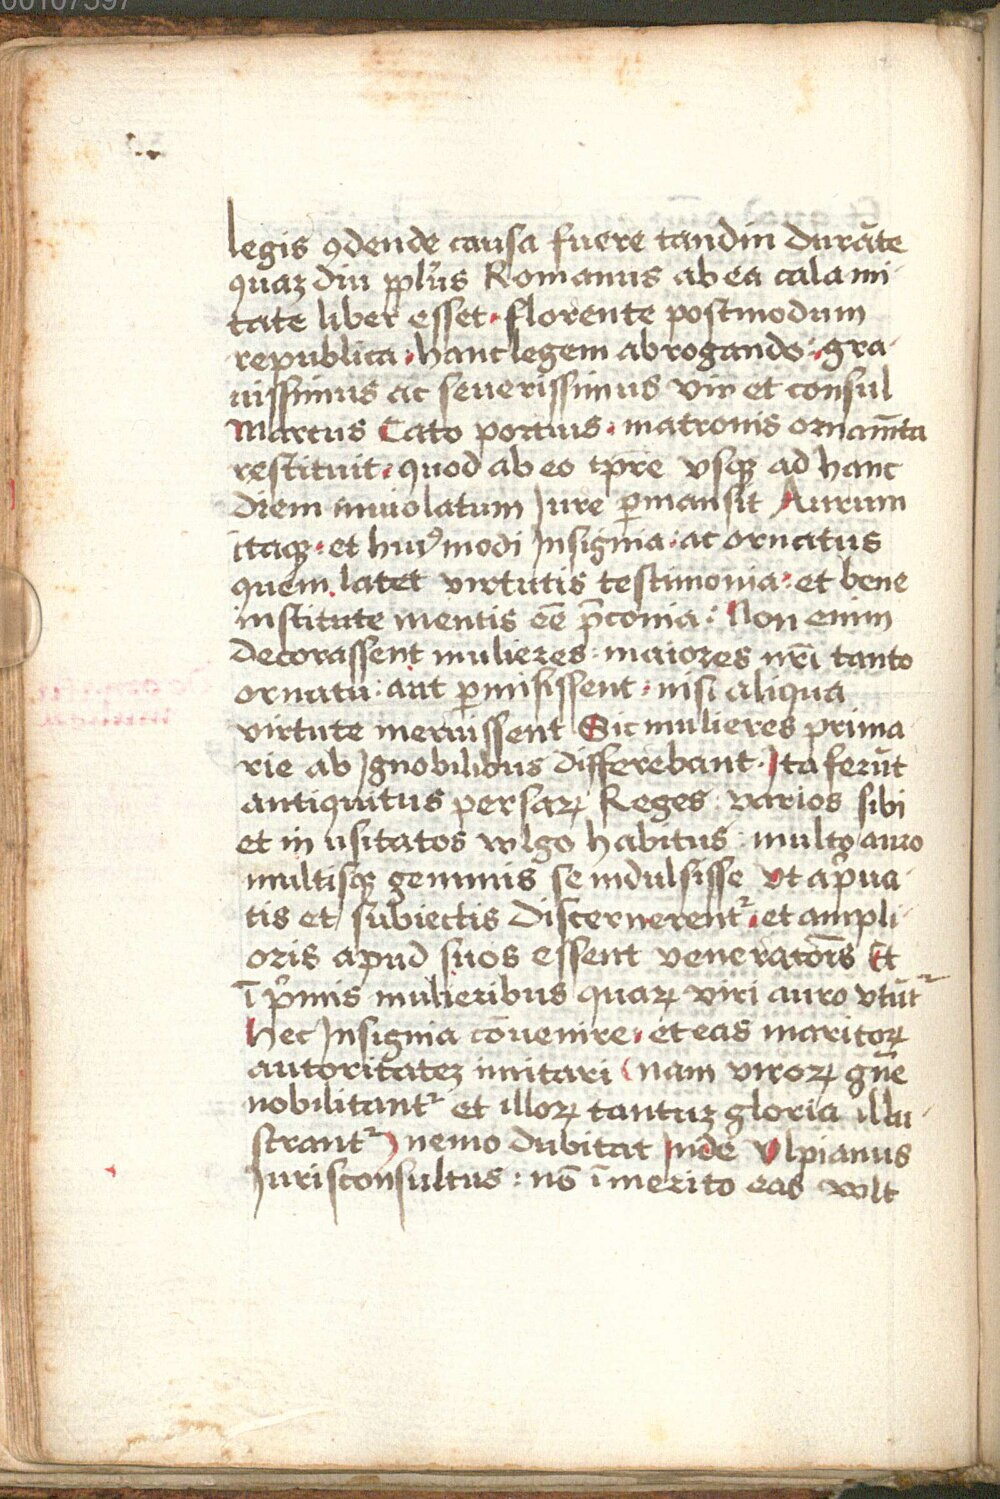 legis ꝯdende causa fuere tandin durāte
quaz diu ppl̄us Romanus ab ea calami-
tate liber esset. florente postmodum
republica. hanc legem abrogando. gra-
uissimus ac seuerissimus vir et consul
Marcus Cato porcius. matronis ornam̄ta
restituit. quod ab eo tp̄re vsqꝫ ad hanc
diem inuiolatum Jure ꝑmansit Aurum
itaqꝫ. et huiꝰmodi Jnsignia. ac ornatus
quem latet virtutis testimonia: et bene
institute mentis eē p̄conia: Non enim
decorassent mulieres. maiores nr̄i tanto
ornatu. aut ꝑmisissent. nisi aliqua
virtute meruissent Sic mulieres prima
rie ab Jgnobilibus differebant. Jta ferūt
antiquitus persaꝝ Reges. varios sibi
et in usitatos wlgo habitus. multo auro
multisqꝫ gemmis se indulsisse vt a p̄ua-
tis et subiectis discernerent᷑. et ampli-
oris apud suos essent veneratōis Et
ī p̄mis mulieribus quaꝝ viri auro vtūt᷑
hec Jnsignia cōuenire. et eas maritoꝝ
autoritatez imitari (nam viroꝝ gn̄e
nobilitant᷑ et illoꝝ tantuz gloria illu-
strant᷑) nemo dubitat Jnde Vlpianus
Jurisconsultus: nō īmerito eas wlt